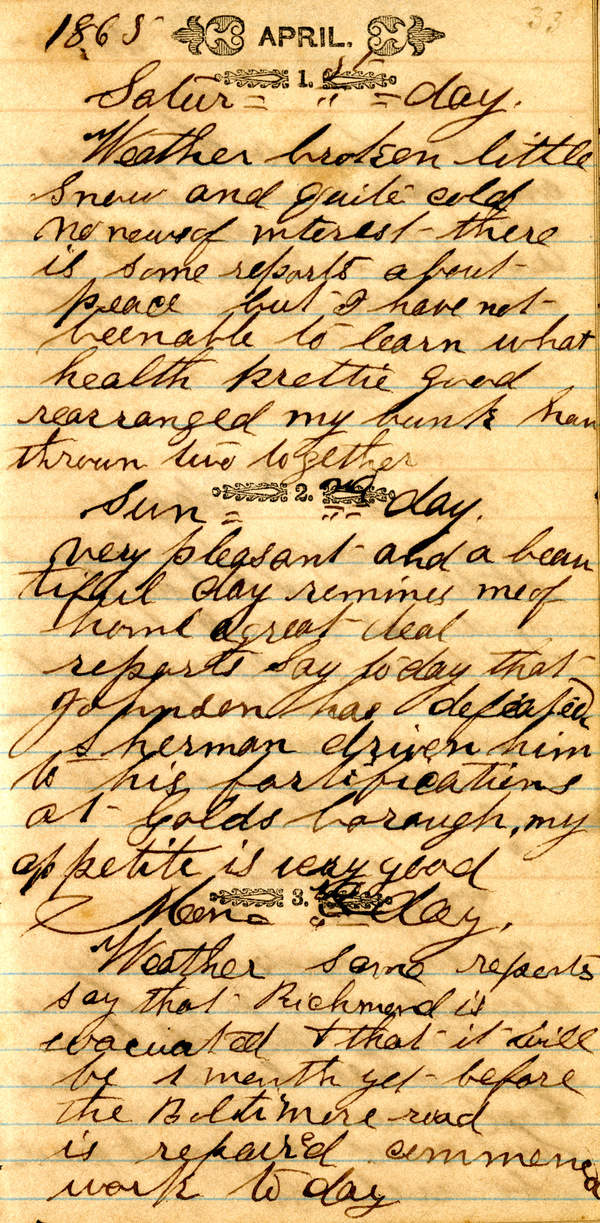 1865 APRIL. 33
1. st
Satur = " = day.
Weather broken little
Snow and quite cold
no news of interest there
is some reports about
peace but I have not
beenable to learn what
health prettie good
rearranged my bunk hav
thrown two together
2. nd
Sun = " day.
very pleasant and a beau
tifull day remines me of
home a great deal
reports Say to day that
Johnson has defeated
Sherman driven him
to his fortifications
at Golds borough, my
appetite is very good
3.
Mon = day.
Weather same reports
say that Richmond is
evacuated & that it will
be 1 month yet before
the Boltimore road
is repaird commenced
work to day